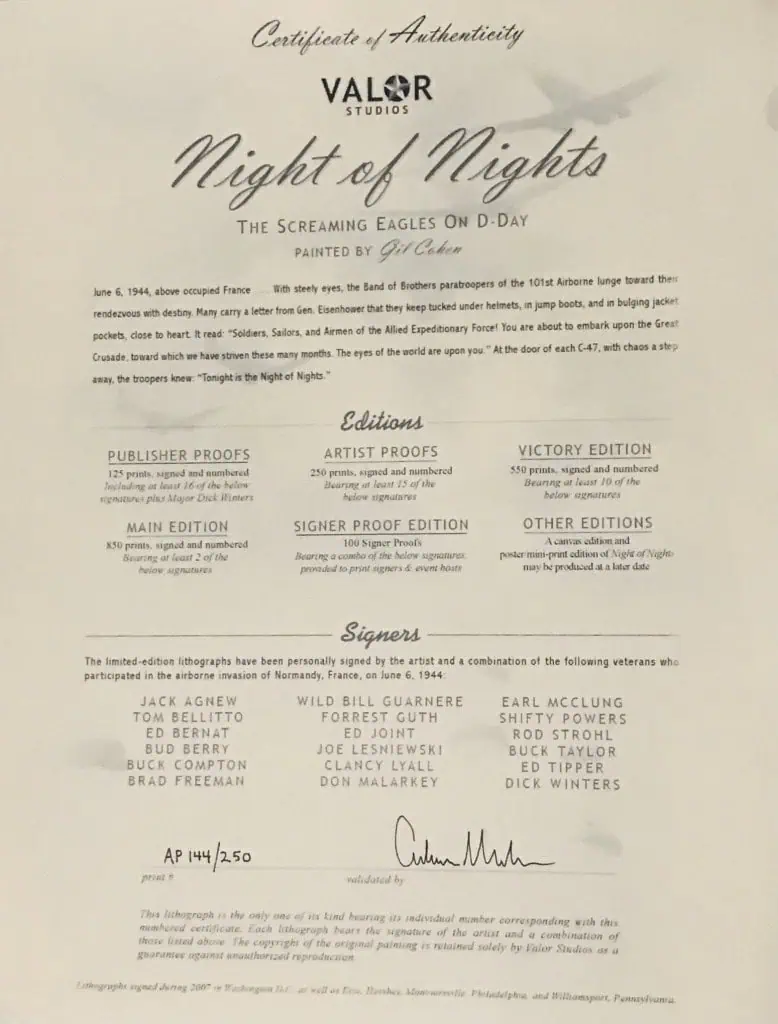 Certificate of Authenticity
VALOR
STUDIOS
Night of Nights
THE SCREAMING EAGLES ON D-DAY
PAINTED BY Gil Cohen
June 6, 1944, above occupied France With steely eyes, the Band of Brothers paratroopers of the 101st Airborne lunge toward their
rendezvous with destiny. Many carry a letter from Gen. Eisenhower that they keep tucked under helmets, in jump boots, and in bulging jacket
pockets, close to heart. It read: "Soldiers, Sailors, and Airmen of the Allied Expeditionary Force! You are about to embark upon the Great
Crusade, toward which we have striven these many months. The eyes of the world are upon you." At the door of each C-47, with chaos a step
away, the troopers knew: "Tonight is the Night of Nights."
Editions
PUBLISHER PROOFS
125 prints, signed and numbered
Including at least 16 of the below
signatures plus Major Dick Winters
ARTIST PROOFS
250 prints, signed and numbered
Bearing at least 15 of the
below signatures
VICTORY EDITION
550 prints, signed and numbered
Bearing at least 10 of the
below signatures
MAIN EDITION
850 prints, signed and numbered
Bearing at least 2 of the
below signatures
SIGNER PROOF EDITION
100 Signer Proofs
Bearing a combo of the below signatures,
provided to print signers & event hosts
OTHER EDITIONS
A canvas edition and
poster/mini-print edition of Night of Nights
may be produced at a later date
Signers
The limited-edition lithographs have been personally signed by the artist and a combination of the following veterans who
participated in the airborne invasion of Normandy, France, on June 6, 1944:
JACK AGNEW
TOM BELLITTO
ED BERNAT
BUD BERRY
BUCK COMPTON
BRAD FREEMAN
WILD BILL GUARNERE
FORREST GUTH
ED JOINT
JOE LESNIEWSKI
CLANCY LYALL
DON MALARKEY
EARL MCCLUNG
SHIFTY POWERS
ROD STROHL
BUCK TAYLOR
ED TIPPER
DICK WINTERS
AP 144/250
print #
validated by
This lithograph is the only one of its kind bearing its individual number corresponding with this
numbered certificate. Each lithograph bears the signature of the artist and a combination of
those listed above. The copyright of the original painting is retained solely by Valor Studios as a
guarantee against unauthorized reproduction.
Lithographs signed during 2007 in Washington D.C. as well as Erie, Hershey, Philadelphia, and Williamsport, Pennsylvania.